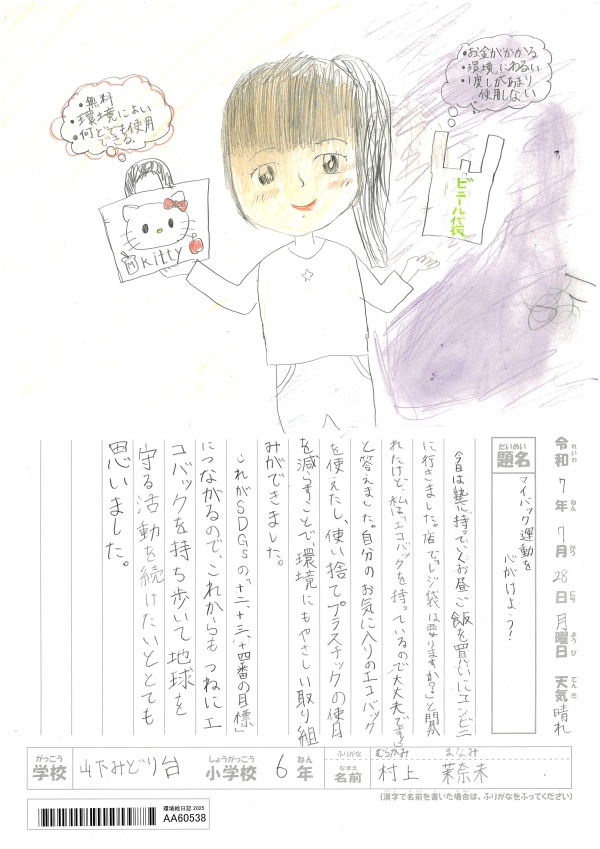 ・無料
・環境によい
・何どでも使用
できる
・お金がかかる
・環境にわるい
・1度しかあまり
使用しない
ビニール袋
Kitty
令和 7年 7月 28日 月曜日 天気 晴れ
れいわ ねん がつ にち ようび てんき
だいめい
題名 マイバック運動を
心がけよう!
今日は塾に持っていくお昼ご飯を買いにコンビニ
に行きました。店で「レジ袋は要りますか?」と聞か
れたけど、私はエコバックを持っているので大丈夫です。
と答えました。自分のお気に入りのエコバック
を使えたし、使い捨てプラスチックの使用
を減らすことで、環境にもやさしい取り組
みができました。
これがSDGsの「十二、十三、十四番の目標」
につながるので、これからもつねにエ
コバックを持ち歩いて地球を
守る活動を続けたいととても
思いました。
がっこう しょうがっこう ねん
学校 山下みどり台 小学校 6年
ふりがな むらかみ まなみ
なまえ
名前 村上 茉奈未
(漢字で名前を書いた場合は、ふりがなをふってください)
環境絵日記 2025
AA60538